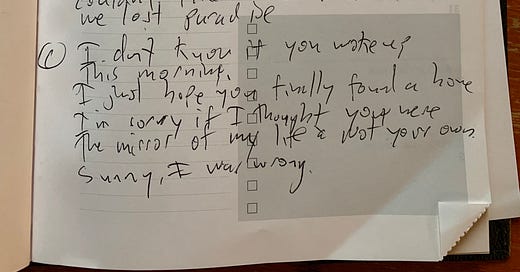 we lost paradise
① I don't know if you woke up
This morning.
I just hope you finally found a home
I'm sorry if I thought you were
The mirror of my life & not your own.
Sunny, I was wrong.